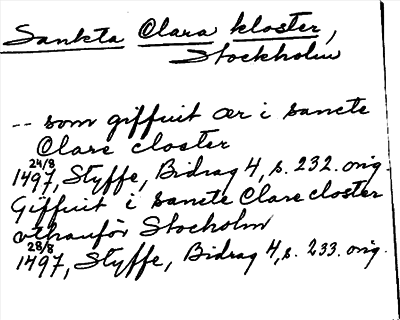 Sankta Clara kloster,
Stockholm
-- som giffuit ær i sancte
Clare closter
24/8
1497, Styffe, Bidrag 4, s. 232. orig.
Giffuit i sancte Clare closter
vthanför Stocholm
28/8
1497, Styffe, Bidrag 4, s. 233. orig.